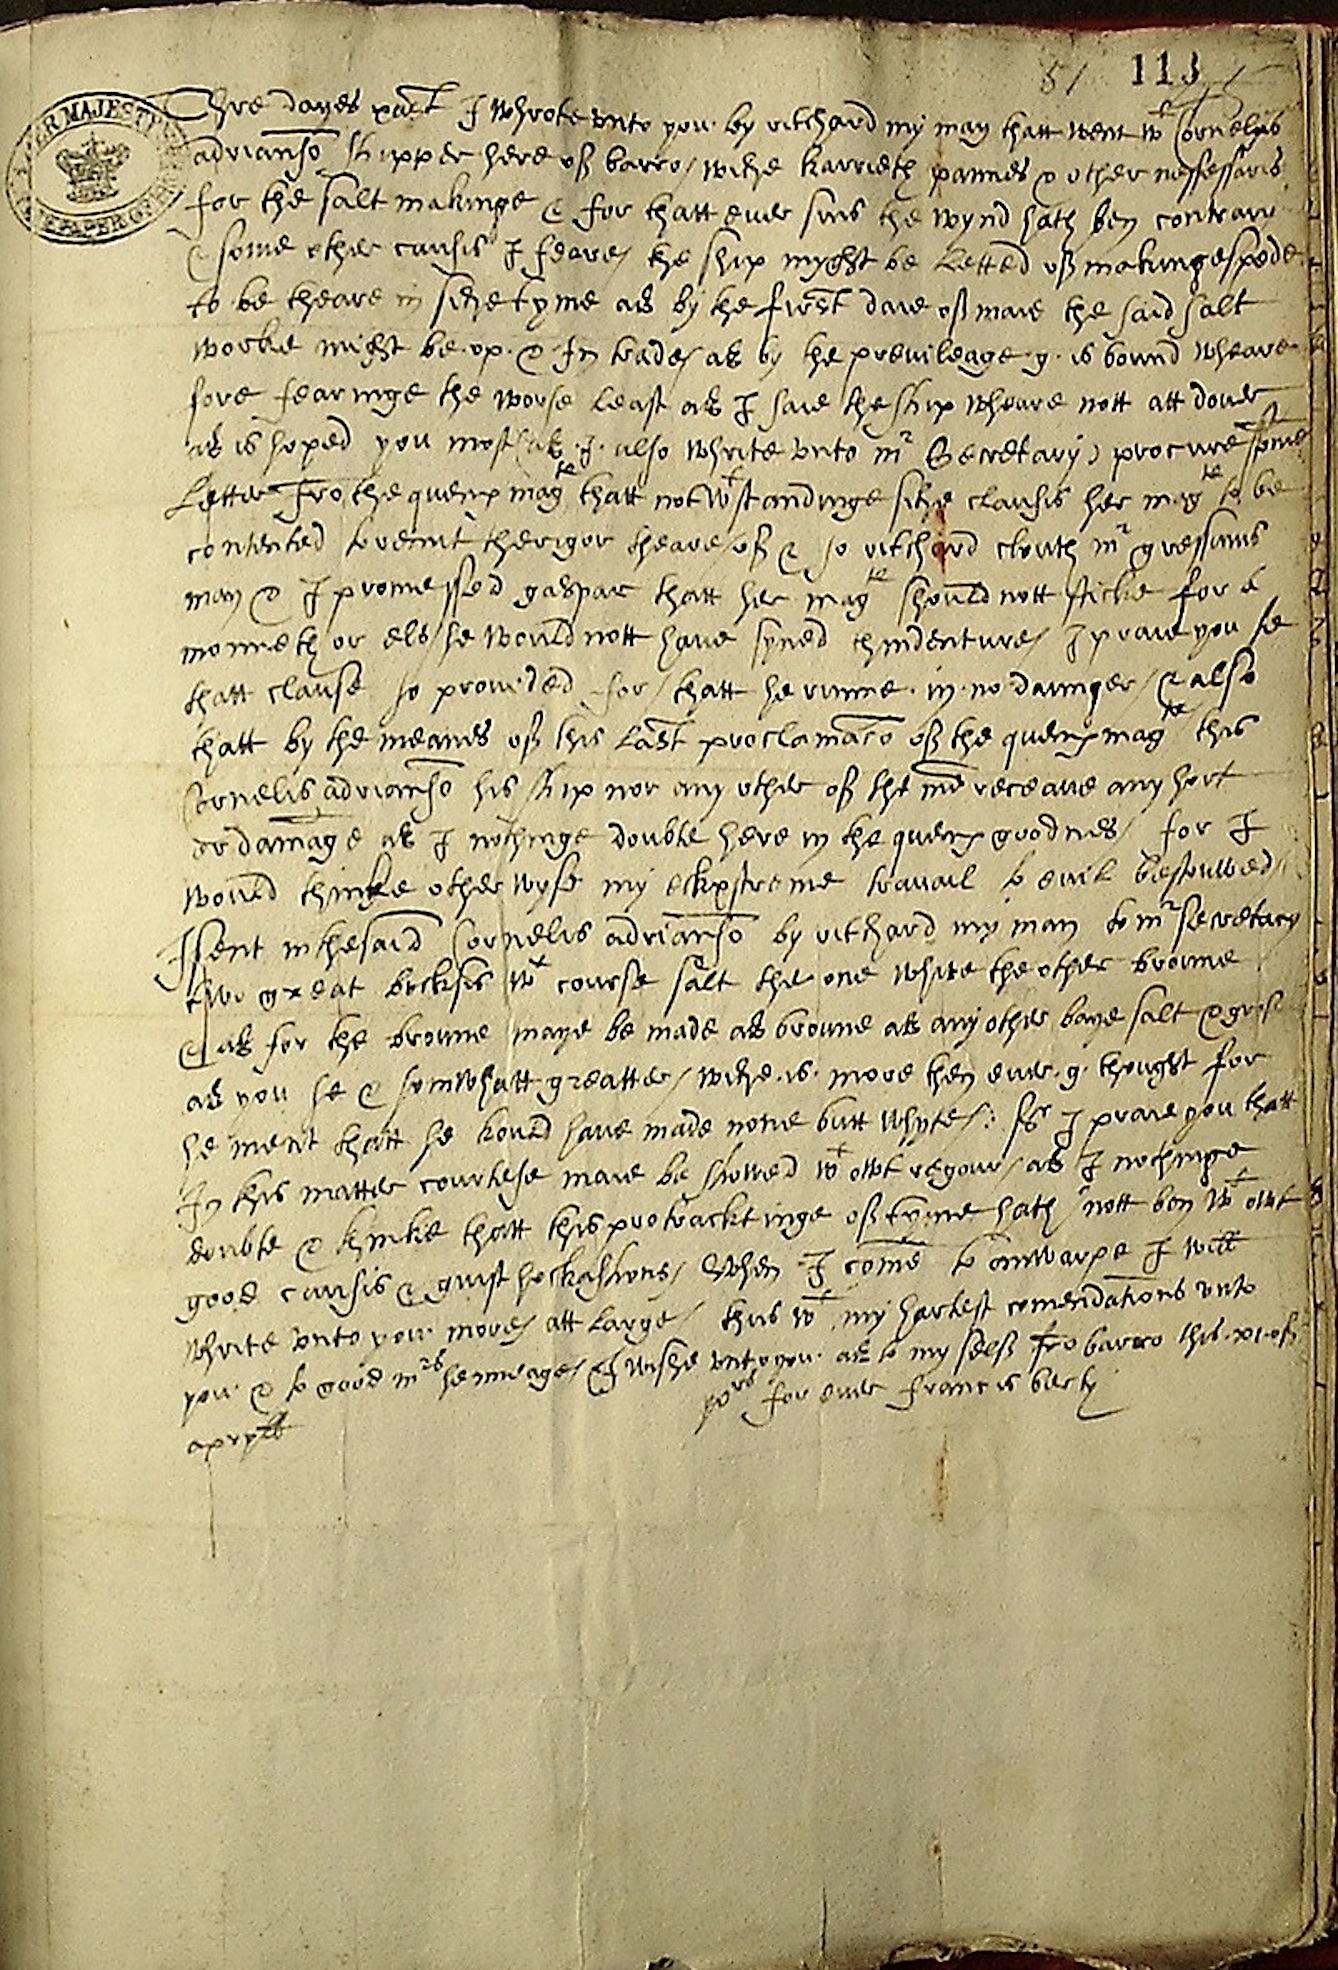 51 113
Thre dayes past I Whrote vnto you by ritchard my man thatt went wt Cornelys
adrianso skipper here off barro / wiche karrieth pannes & other nessessaris
for the salt makinge & for thatt ever sins the wynd hath ben contrary
& some other causis I feare / the ship myght be letted off makinge spede
to be theare in siche tyme as by the first daie off maie the said salt
worke might be op & In trade / as by the previleage g. is bound wheare
fore fearinge the worse least as I saie the ship wheare nott att dover
as is hoped you most / as I also Whrite vnto mr Secretary / procure some
Letter fro the quenes magte thatt notwtstandinge siche clausis her magte to be
contented to remit the rigor theare off & so ritchard clouth mr gressams
man & I promessed gaspar thatt her magte should nott sticke for a
monneth or els he would nott have syned thindenture / I praie you se
thatt clause so provided for / thatt he runne in no daunger / & also
thatt by the meanes off this last proclamacio off the quenes magte this
Cornelis adrianso his ship nor any other off the me receave any hort
or damage as I nothinge doubte here in the quenes goodnes / for I
would thinke otherwyse my eckxstreme travail to evil bestowed /
I sent in the said Cornelis adrianso by ritchard my man to mr secretary
two great bocksis wt course salt the one white the other broune
& as for the broune maye be made as broune as any other baye salt & grose
as you se & somwhatt greatter / wiche is more then ever g. thought for
he ment thatt he kould have made none butt whyte /: Sr I praie you thatt
In this matter courtese maie be showed wt owt regour / as I nothinge
doubte & thinke thatt this protracktinge off tyme hath nott ben wt owt
good causis & gust hockashons / When I come to anwarpe I will
Whrite vnto you more / att large / thus wt my hartest comendations vnto
you & to good mres henneage / I wishe vnto you as to my self fro barro this xi off
aprill yors for ever francis berty